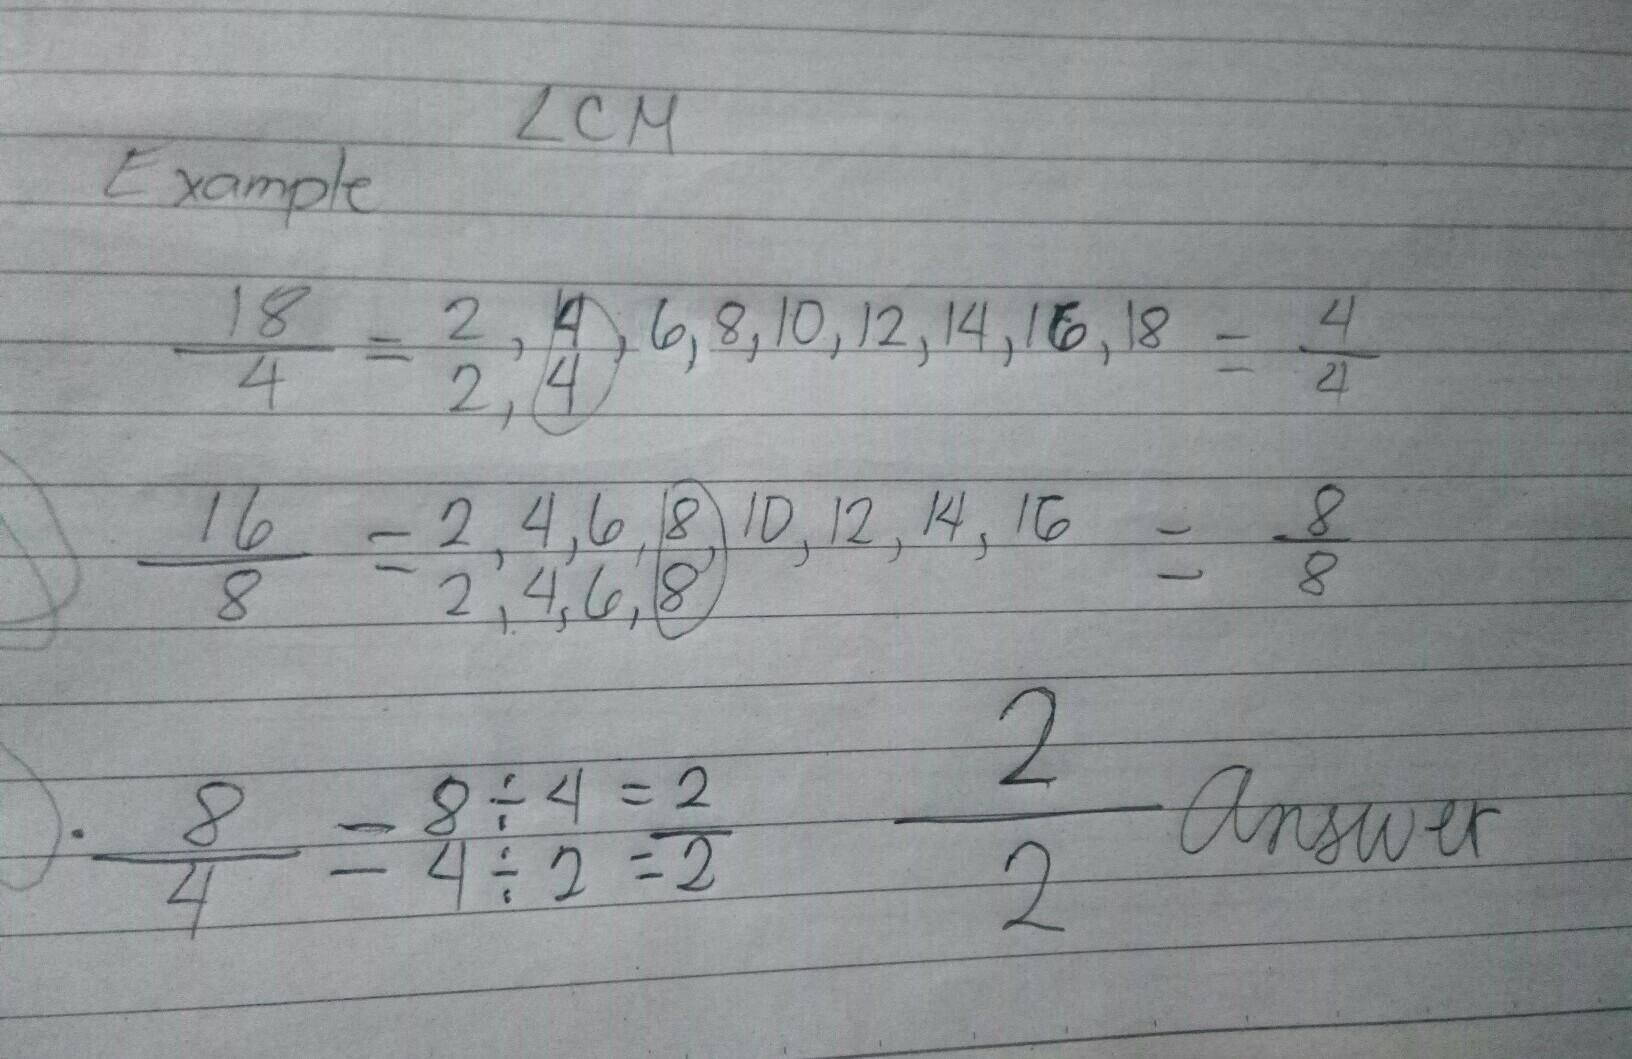 LCM
Example
18/4 = 2, 4, 6, 8, 10, 12, 14, 16, 18 = 4/4
2, 4
16/8 = 2, 4, 6, 8, 10, 12, 14, 16 = 8/8
2, 4, 6, 8
8/4 = 8 ÷ 4 = 2
4 ÷ 2 = 2
2/2 Answer